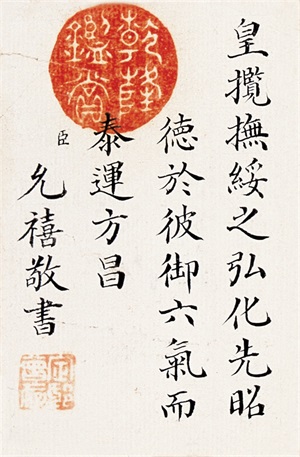 乾隆
鑑賞
皇攬撫綏之弘化先昭
德於彼御六氣而
泰運方昌
臣允禧敬書